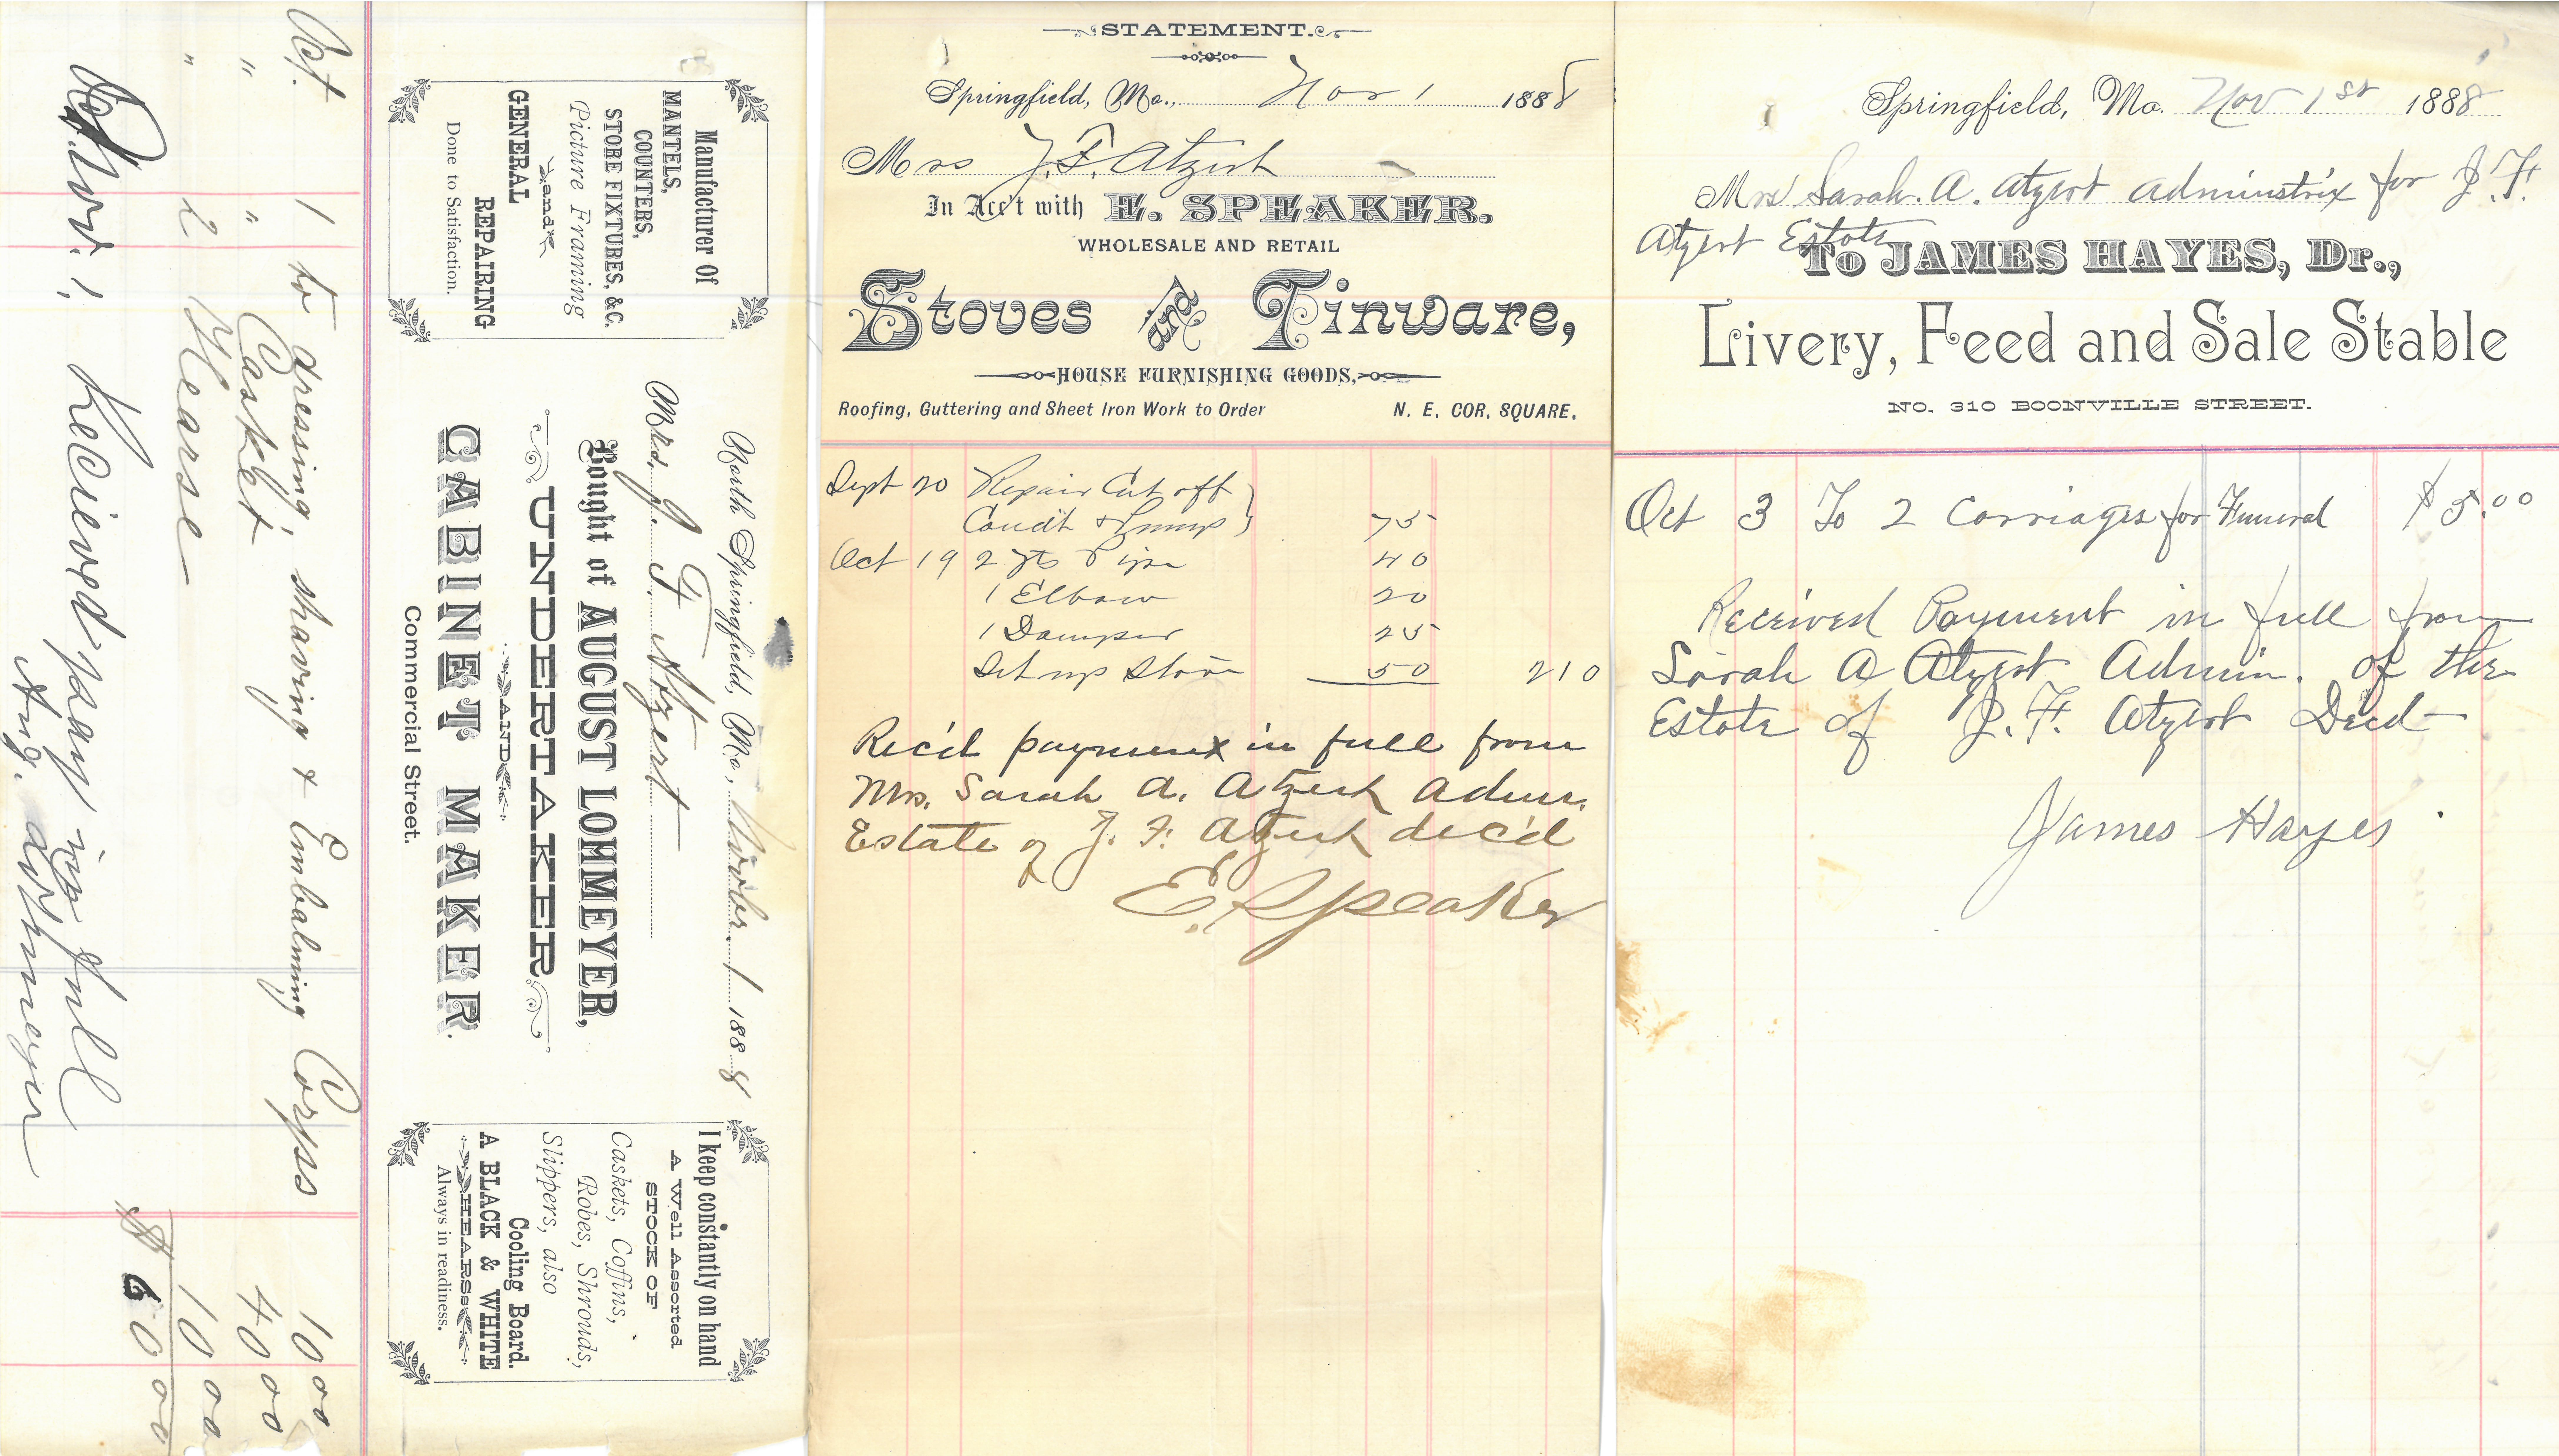 North Springfield, Mo., Novbr. 1 1888
Mrs. J. F. Atzert
Bought of AUGUST LOHMEYER,
UNDERTAKER
AND
CABINET MAKER.
Commercial Street.
Manufacturer Of
MANTELS,
COUNTERS,
STORE FIXTURES, &C.
Picture Framing
and
GENERAL
REPAIRING
Done to Satisfaction.
I keep constantly on hand
A Well Assorted
STOCK OF
Caskets, Coffins,
Robes, Shrouds,
Slippers, also
Cooling Board.
A BLACK & WHITE
HEARSE
Always in readiness.
Oct. 1 to dressing, shaving & Embalming Corpss 10 00
" " Casket 40 00
" 2 Hearse 10 00
$ 60 00
Nov. 1, Recieved pay in full
Aug. Lohmeyer
STATEMENT.
Springfield, Mo., Nov 1 1888
Mrs J. F. Atzert
In Acc't with E. SPEAKER.
WHOLESALE AND RETAIL
Stoves and Tinware,
HOUSE FURNISHING GOODS,
Roofing, Guttering and Sheet Iron Work to Order N. E. COR. SQUARE.
Sept 20 Repair Cut off
Condt & Pump 75
Oct 19 2 Jts Pipe 40
1 Elbow 20
1 Damper 25
Set up Stove 50 2 10
Rec'd payment in full from
Mrs. Sarah A. Atzert Admr.
Estate of J. F. Atzert dec'd
E. Speaker
Springfield, Mo. Nov 1st 1888
Mrs Sarah. A. Atzert Adminstrix for J. F.
Atzert Estate
To JAMES HAYES, Dr.,
Livery, Feed and Sale Stable
NO. 310 BOONVILLE STREET.
Oct 3 To 2 Carriages for Funeral $5.00
Received Payment in full from
Sarah A Atzert Admin. of the
Estate of J. F. Atzert Decd
James Hayes